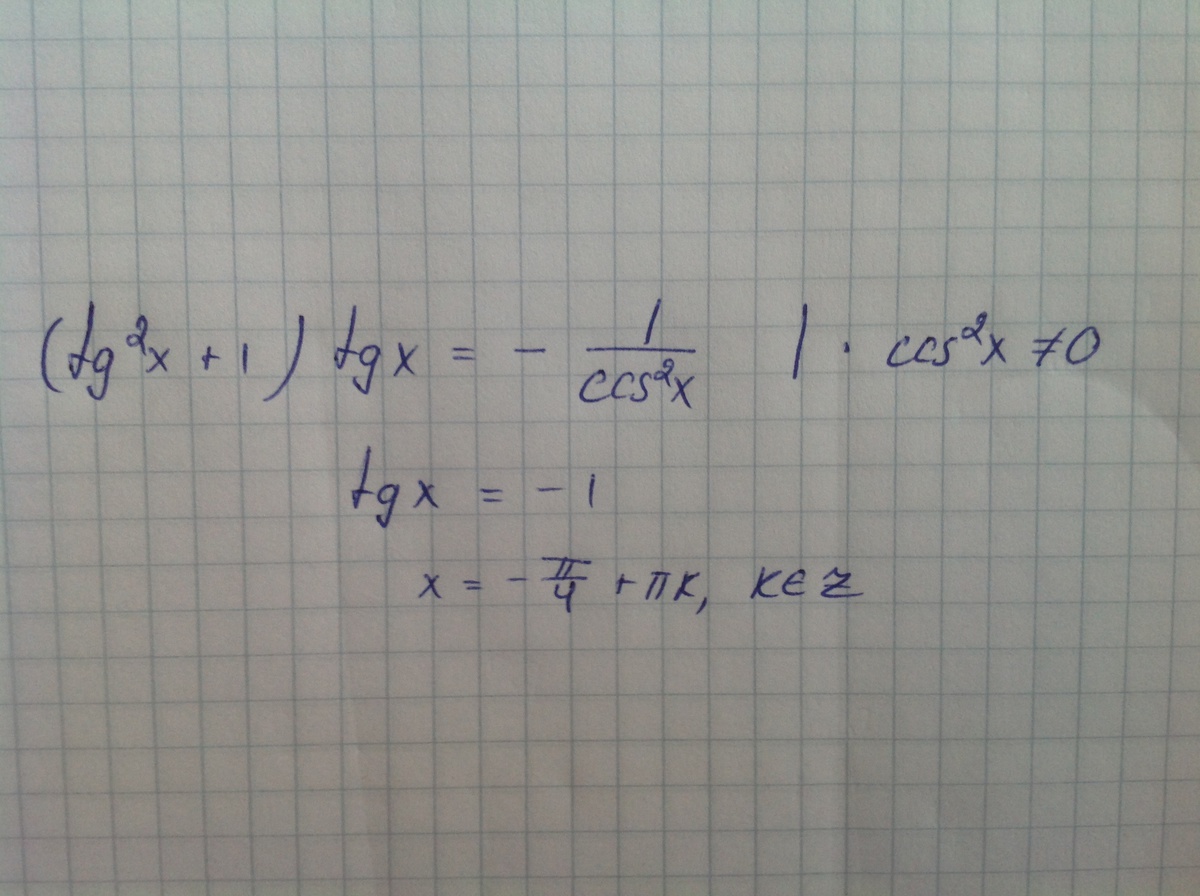 (tg²x + 1) tg x = - 1/cos²x | · cos²x ≠ 0
tg x = - 1
x = - π/4 + πk, k ∈ Z